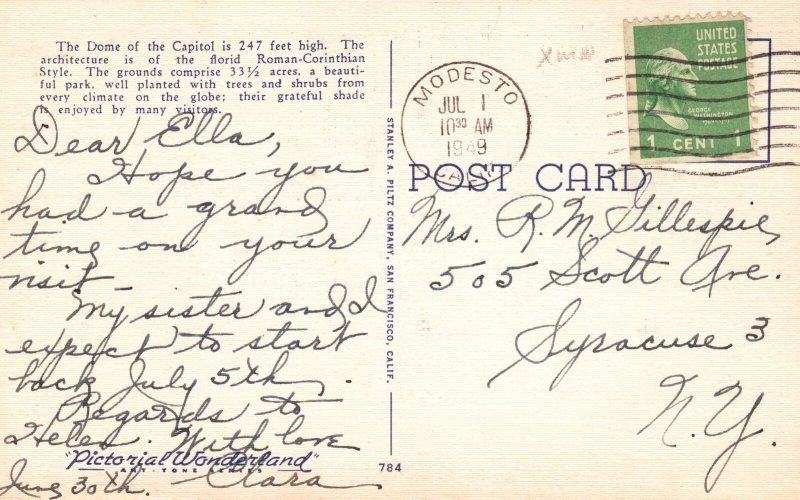 The Dome of the Capitol is 247 feet high. The
architecture is of the florid Roman-Corinthian
Style. The grounds comprise 33½ acres, a beauti-
ful park, well planted with trees and shrubs from
every climate on the globe; their grateful shade
is enjoyed by many visitors.
Dear Ella,
Hope you
had a grand
time on your
visit -
My sister and I
expect to start
back July 5th.
Regards to
Helen. With love
Clara
June 30th.
"Pictorial Wonderland"
ART-TONE SERIES
784
STANLEY A. PILTZ COMPANY, SAN FRANCISCO, CALIF.
MODESTO
JUL 1
10 30 AM
1949
CALIF.
UNITED
STATES
POSTAGE
GEORGE
WASHINGTON
1 CENT 1
POST CARD
Mrs. R. M. Gillespie,
505 Scott Ave.
Syracuse 3
N.Y.